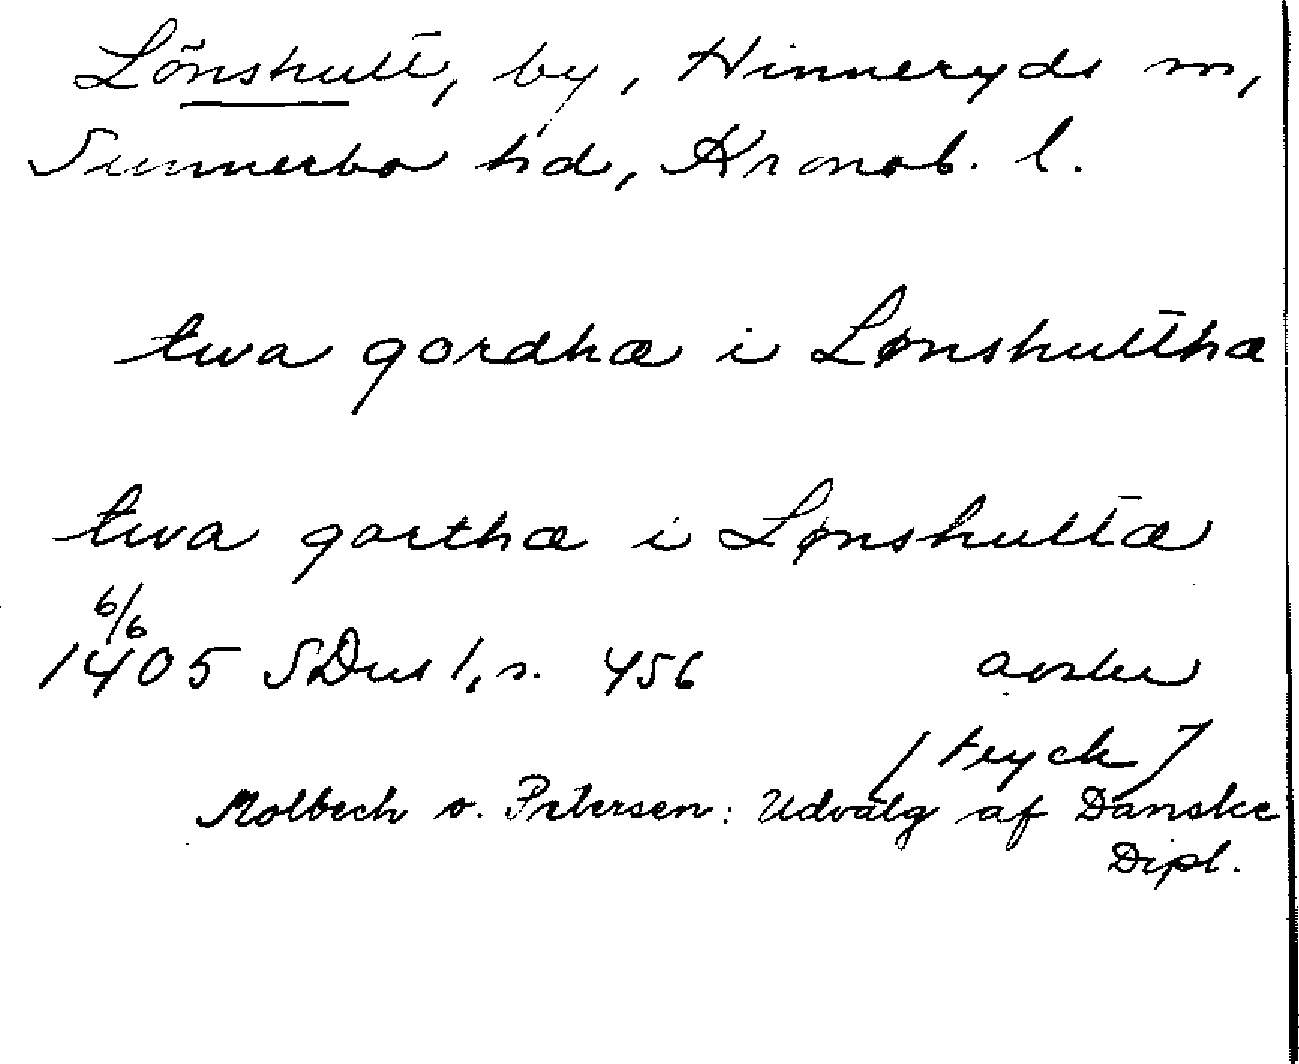 Lönshult, by, Hinneryds sn,
Sunnerbo hd, Kronob. l.
twa gordhæ i Lønshulthæ
twa garthæ i Lønshultæ
6/6
1405 SDns 1, s. 456 avskr
[tryck]
Molbech o. Petersen: Udvalg af Danske
Dipl.